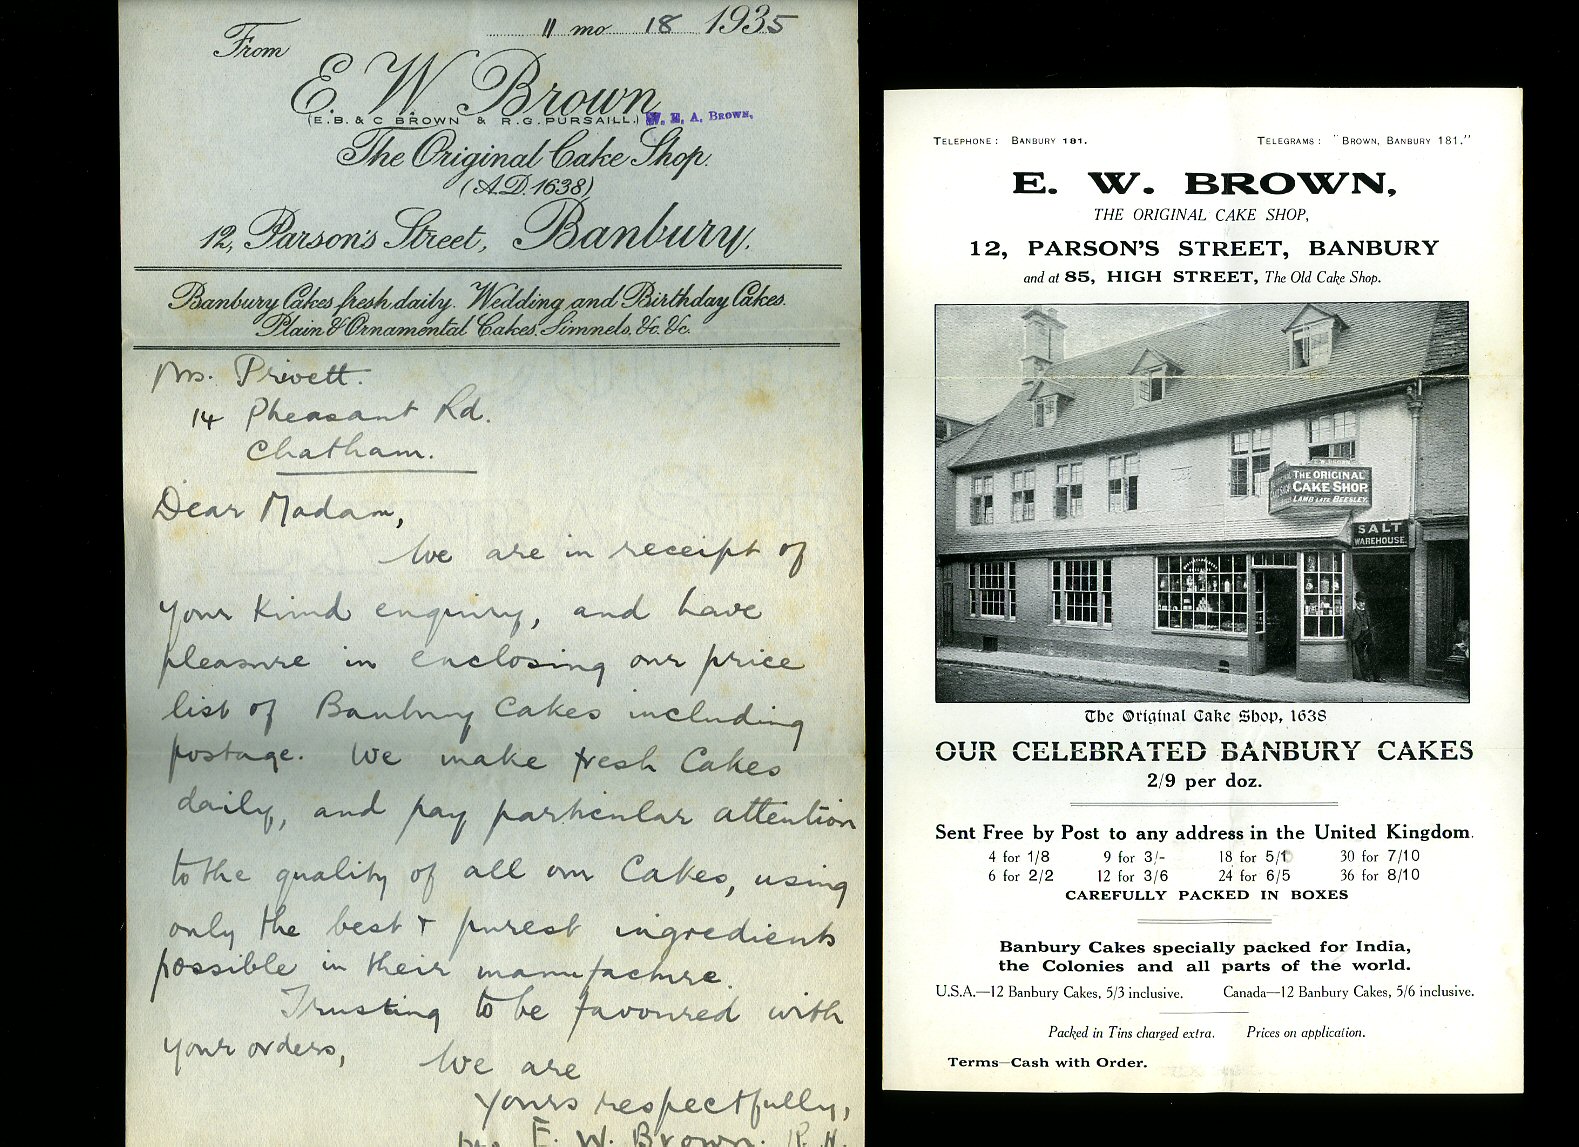 11 mo 18 1935
From
E. W. Brown
(E.B. & C BROWN & R.G. PURSAILL.) W. E. A. BROWN.
The Original Cake Shop.
(A.D. 1638)
12, Parson's Street, Banbury.
Banbury Cakes fresh daily. Wedding and Birthday Cakes.
Plain & Ornamental Cakes. Simnels, &c. &c.
Mrs. Privett.
14 Pheasant Rd.
Chatham.
Dear Madam,
We are in receipt of
your kind enquiry, and have
pleasure in enclosing our price
list of Banbury Cakes including
postage. We make fresh Cakes
daily, and pay particular attention
to the quality of all our Cakes, using
only the best + purest ingredients
possible in their manufacture.
Trusting to be favoured with
your orders,
We are
Yours respectfully,
E. W. Brown.
TELEPHONE: BANBURY 181.
TELEGRAMS: "BROWN, BANBURY 181."
E. W. BROWN,
THE ORIGINAL CAKE SHOP,
12, PARSON'S STREET, BANBURY
and at 85, HIGH STREET, The Old Cake Shop.
THE ORIGINAL
CAKE SHOP
LAMB LATE BEESLEY.
SALT
WAREHOUSE.
The Original Cake Shop, 1638
OUR CELEBRATED BANBURY CAKES
2/9 per doz.
Sent Free by Post to any address in the United Kingdom.
4 for 1/8 9 for 3/- 18 for 5/1 30 for 7/10
6 for 2/2 12 for 3/6 24 for 6/5 36 for 8/10
CAREFULLY PACKED IN BOXES
Banbury Cakes specially packed for India,
the Colonies and all parts of the world.
U.S.A.—12 Banbury Cakes, 5/3 inclusive. Canada—12 Banbury Cakes, 5/6 inclusive.
Packed in Tins charged extra. Prices on application.
Terms—Cash with Order.